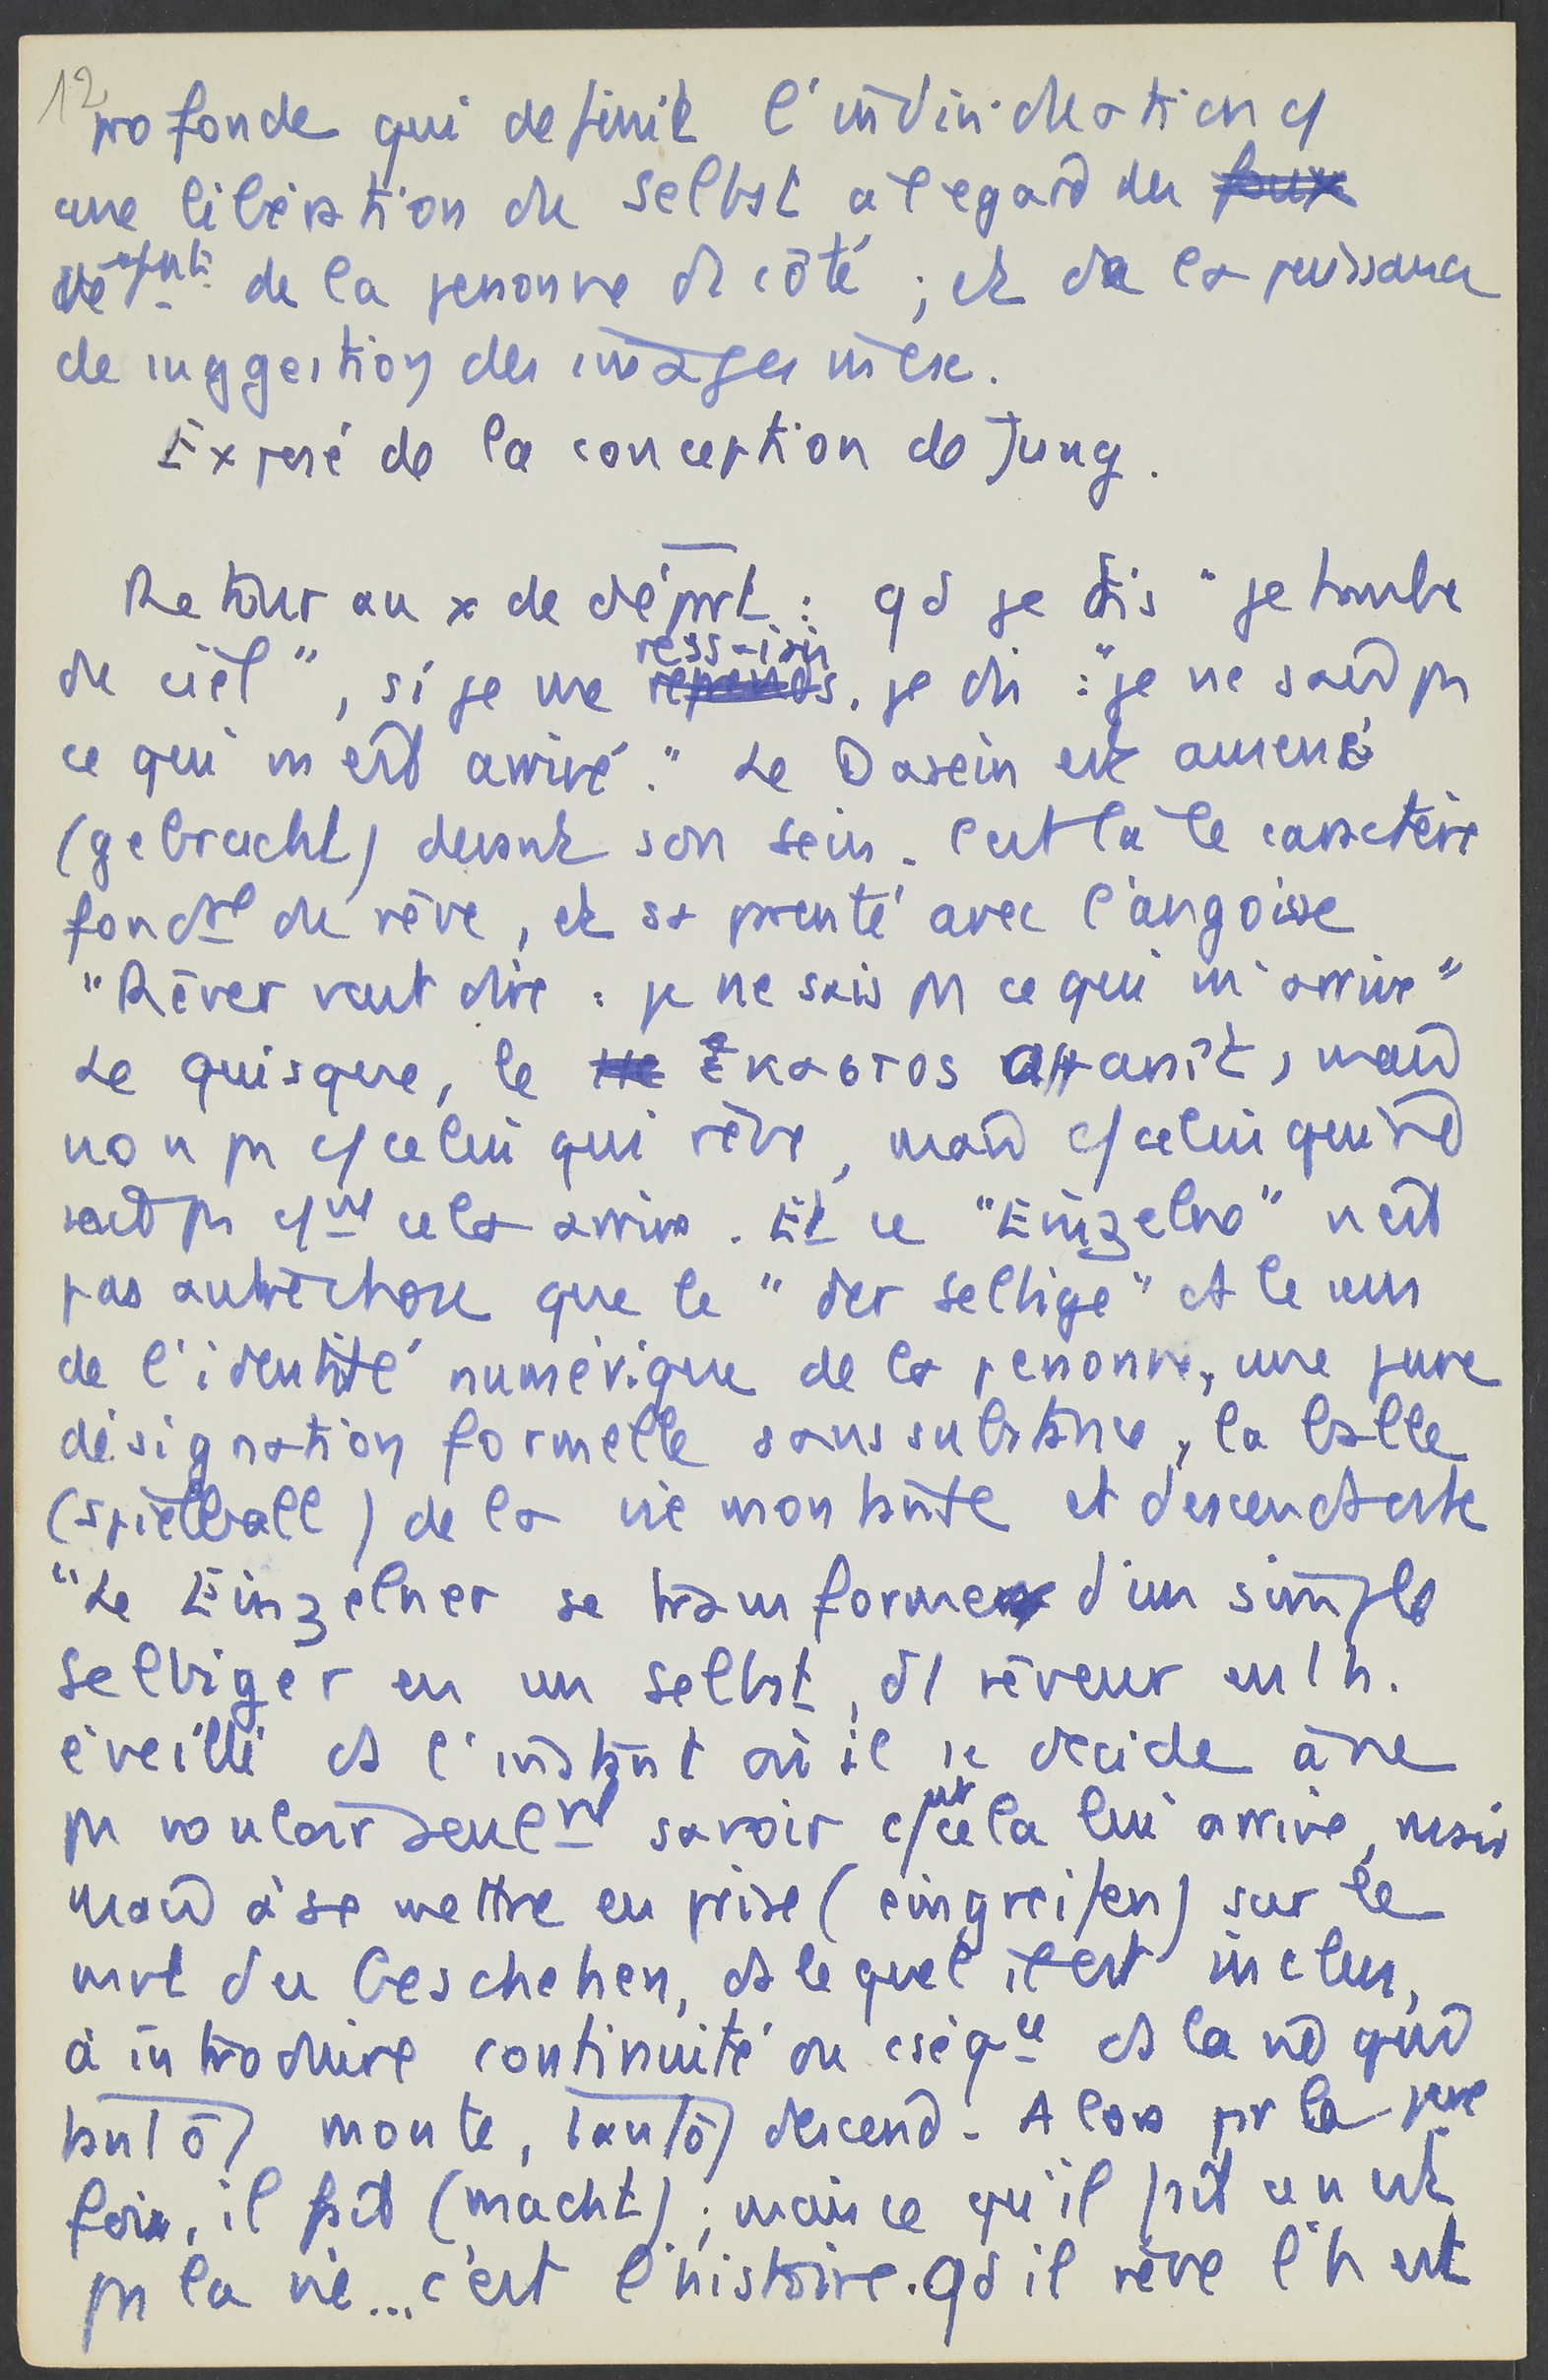 12
profonde qui definit l'individuation c/
une libération du Selbst a l egard du faux
de la personne d côté ; et de la puissance
de suggestion des images mère.
Exposé de la conception de Jung.
Retour au x de départ : qd je dis "je tombe
du ciel", si je me ressaisis repends, je dis : "je ne sais ps
ce qui m'est arrivé." Le Dasein est amené
(gebracht) devant son sein. C'est là le caractère
fondal du rêve, et sa parenté avec l'angoisse
"Rêver veut dire : je ne sais ps ce qui m'arrive"
Le quisque, le ἕκαστος apparaît, mais
non ps c/ celui qui rêve, mais c/ celui qui ne
sait ps cmt cela arrive. Et ce "Einzelne" n'est
pas autre chose que le "der selbige" ds le sens
de l'identité numérique de la personne, une pure
désignation formelle sans substance, la balle
(Spielball) de la vie montante et descendante
"Le Einzelner se transforme d'un simple
Selbiger en un Selbst, d/ rêveur en 1 h.
éveillé ds l'instant où il se décide à ne
ps vouloir seulmt savoir c/mt cela lui arrive, mais
mais à se mettre en prise (eingreifen) sur le
mvt du Geschehen, ds lequel il est inclus,
à introduire continuité ou cséqce ds la vie qui
tantôt monte, tantôt descend. Alors pr la 1ere
fois, il fait (macht) ; mais ce qu'il fait ce n'est
ps la vie... c'est l'histoire. Qd il rêve l'h est